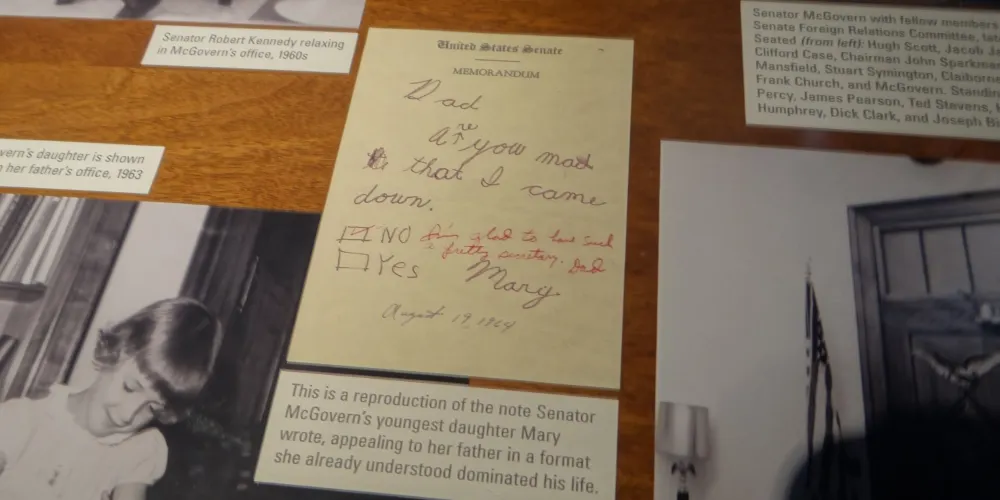 Senator Robert Kennedy relaxing
in McGovern's office, 1960s
United States Senate
MEMORANDUM
Dad
Are you mad
that I came
down.
NO I'm glad to have such
a pretty secretary. Dad
Yes Mary
August 19, 1964
This is a reproduction of the note Senator
McGovern's youngest daughter Mary
wrote, appealing to her father in a format
she already understood dominated his life.
vern's daughter is shown
her father's office, 1963
Senator McGovern with fellow members
Senate Foreign Relations Committee,
Seated (from left): Hugh Scott, Jacob
Clifford Case, Chairman John Sparkman
Mansfield, Stuart Symington, Claiborne
Frank Church, and McGovern. Standin
Percy, James Pearson, Ted Stevens,
Humphrey, Dick Clark, and Joseph Bi